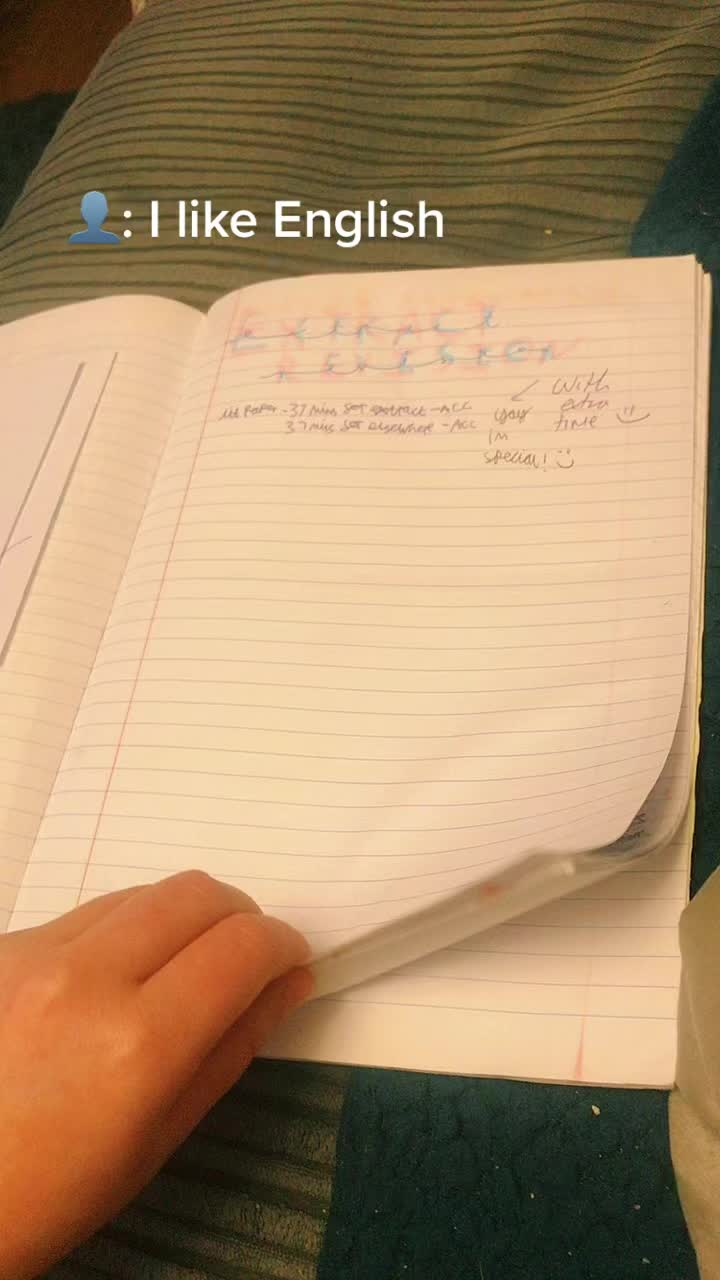 👤: I like English
EXTRACT
REVISION
Paper - 37 mins set extract - ACC
37 mins set elsewhere - ACC
With
extra
time :)
yay
im
special! :)